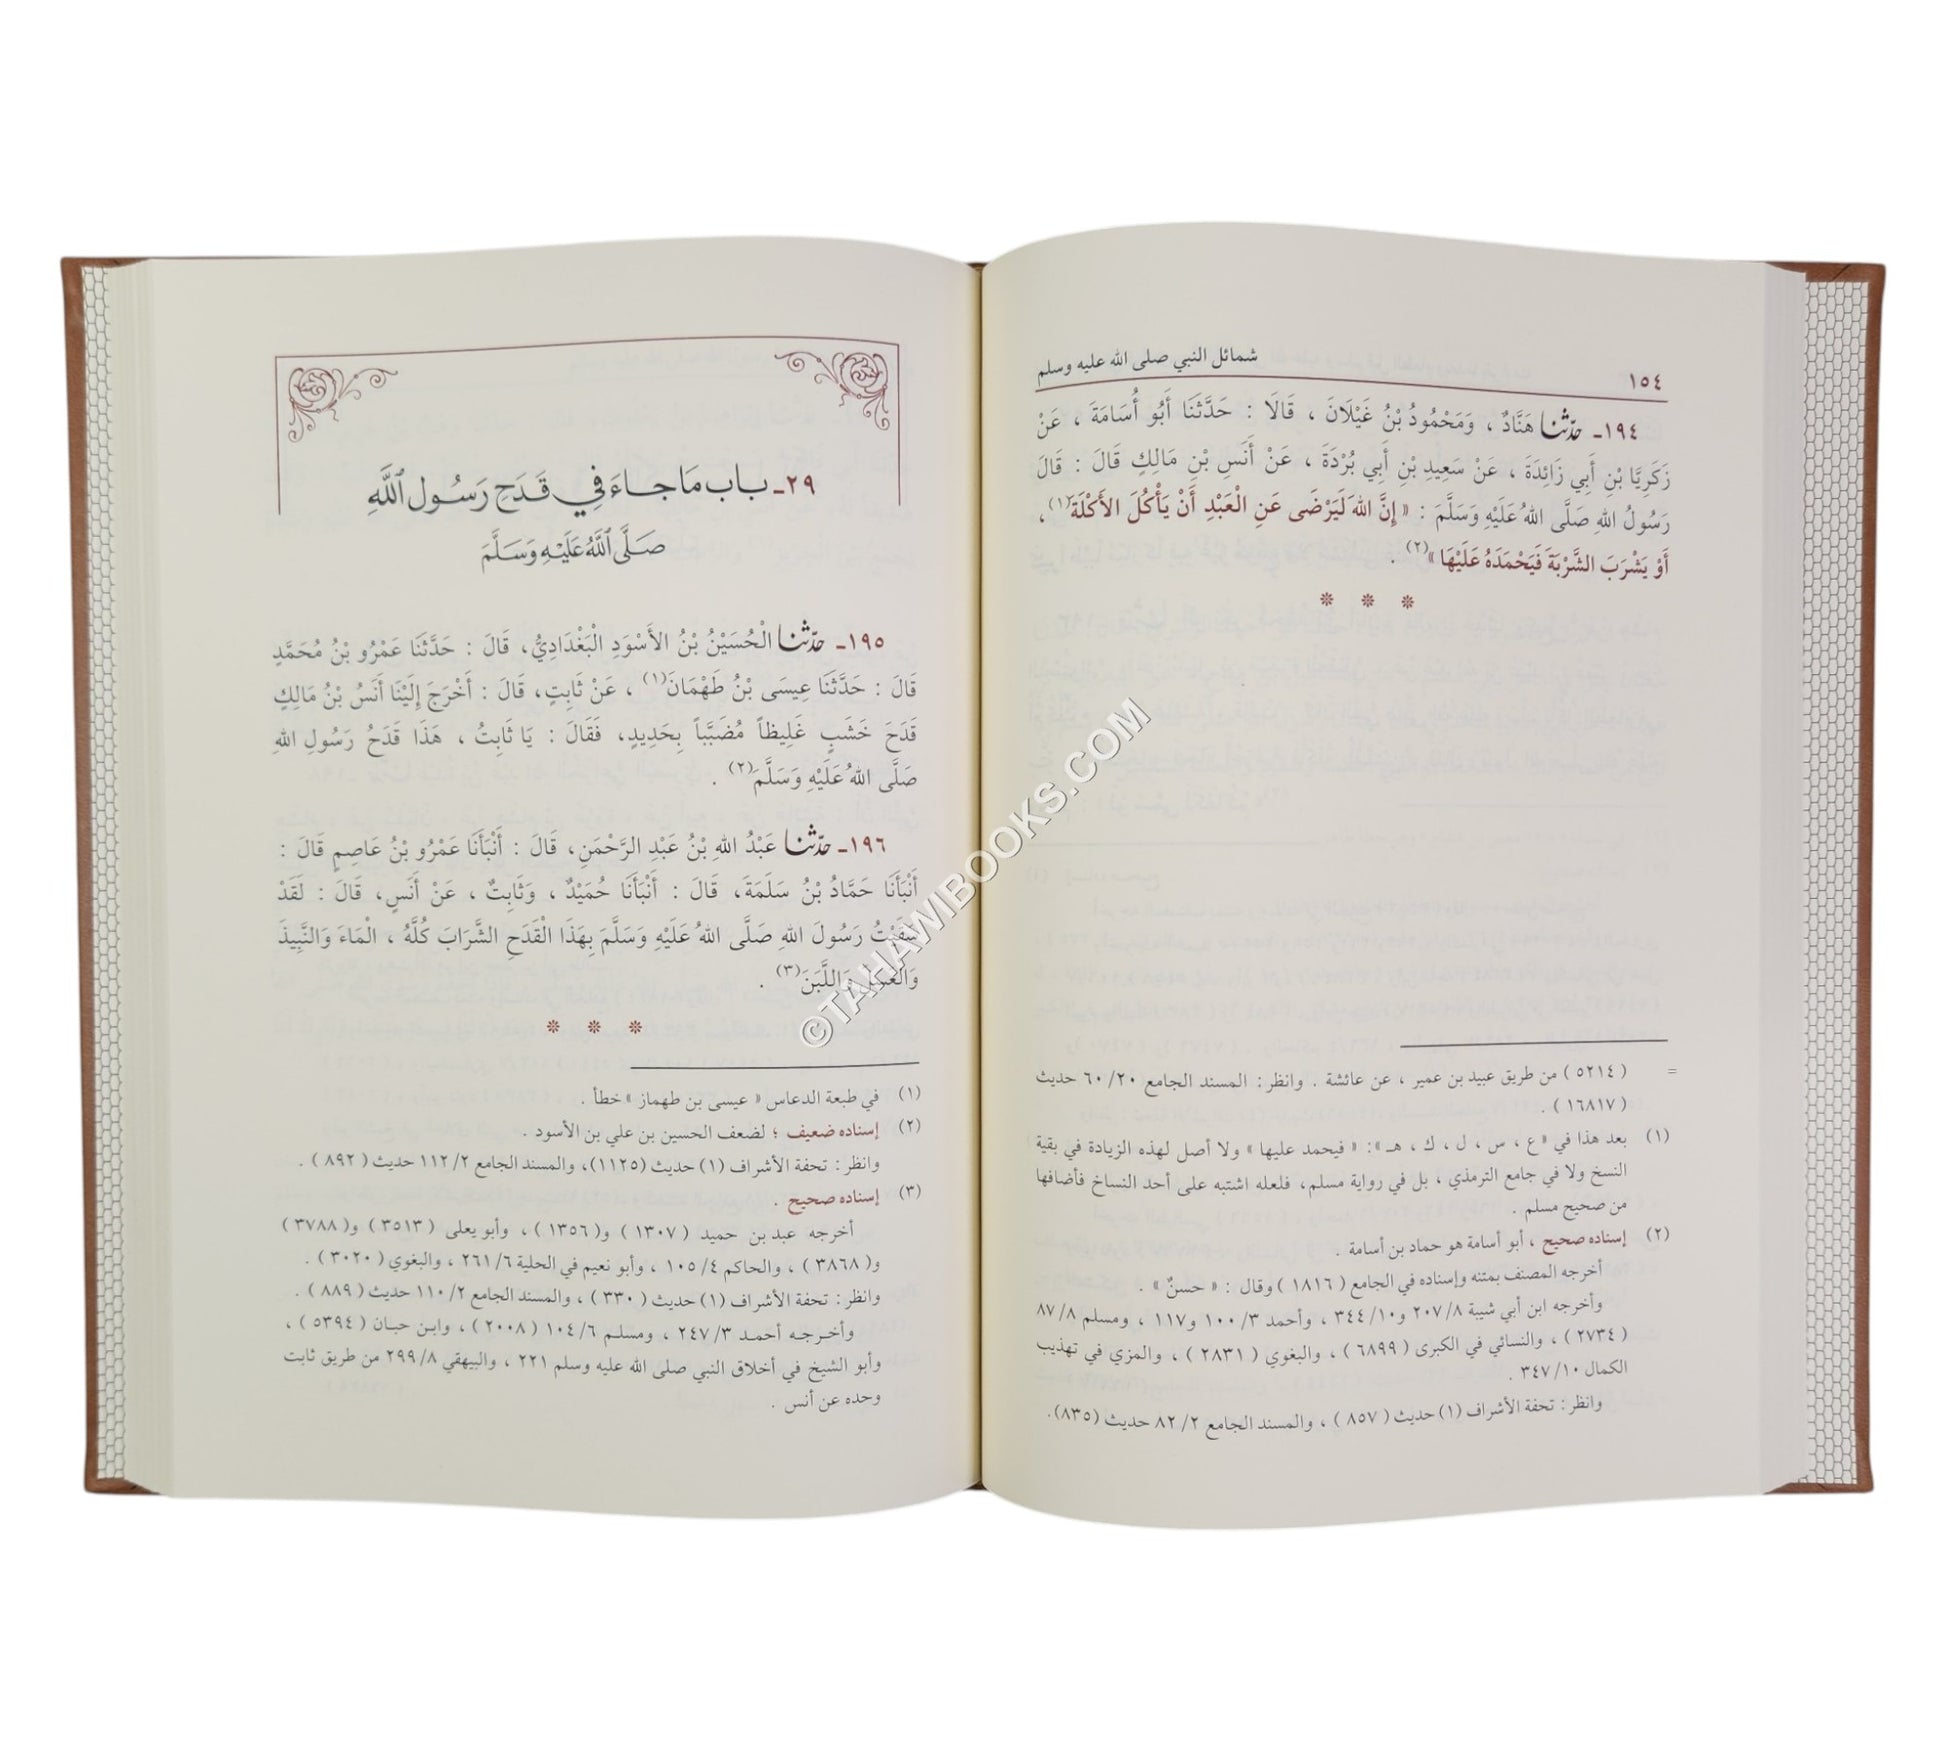 ١٥٤
شمائل النبي صلى الله عليه وسلم
١٩٤ـ حدّثنا هَنَّادٌ ، وَمَحْمُودُ بْنُ غَيْلَانَ ، قَالَا : حَدَّثَنَا أَبُو أُسَامَةَ ، عَنْ
زَكَرِيَّا بْنِ أَبِي زَائِدَةَ ، عَنْ سَعِيدِ بْنِ أَبِي بُرْدَةَ ، عَنْ أَنَسِ بْنِ مَالِكٍ قَالَ : قَالَ
رَسُولُ اللهِ صَلَّى اللهُ عَلَيْهِ وَسَلَّمَ : « إِنَّ اللهَ لَيَرْضَى عَنِ الْعَبْدِ أَنْ يَأْكُلَ الأَكْلَةَ(١)،
أَوْ يَشْرَبَ الشَّرْبَةَ فَيَحْمَدَهُ عَلَيْهَا »(٢) .
= ( ٥٢١٤ ) من طريق عبيد بن عمير ، عن عائشة . وانظر: المسند الجامع ٢٠/ ٦٠ حديث
( ١٦٨١٧ ) .
(١) بعد هذا في «ع ، س ، ل ، ك ، هـ»: « فيحمد عليها » ولا أصل لهذه الزيادة في بقية
النسخ ولا في جامع الترمذي ، بل في رواية مسلم، فلعله اشتبه على أحد النساخ فأضافها
من صحيح مسلم .
(٢) إسناده صحيح ، أبو أسامة هو حماد بن أسامة .
أخرجه المصنف بمتنه وإسناده في الجامع ( ١٨١٦ ) وقال : « حسنٌ » .
وأخرجه ابن أبي شيبة ٨/ ٢٠٧ و١٠/ ٣٤٤ ، وأحمد ٣/ ١٠٠ و١١٧ ، ومسلم ٨/ ٨٧
( ٢٧٣٤ ) ، والنسائي في الكبرى ( ٦٨٩٩ ) ، والبغوي ( ٢٨٣١ ) ، والمزي في تهذيب
الكمال ١٠/ ٣٤٧ .
وانظر: تحفة الأشراف (١) حديث ( ٨٥٧ ) ، والمسند الجامع ٢/ ٨٢ حديث (٨٣٥).
٢٩ـ باب ما جاء في قَدَحِ رَسُولِ ٱللَّهِ
صَلَّى ٱللَّهُ عَلَيْهِ وَسَلَّمَ
١٩٥ـ حدّثنا الْحُسَيْنُ بْنُ الأَسْوَدِ الْبَغْدَادِيُّ، قَالَ : حَدَّثَنَا عَمْرُو بْنُ مُحَمَّدٍ
قَالَ : حَدَّثَنَا عِيسَى بْنُ طَهْمَانَ(١) ، عَنْ ثَابِتٍ، قَالَ : أَخْرَجَ إِلَيْنَا أَنَسُ بْنُ مَالِكٍ
قَدَحَ خَشَبٍ غَلِيظاً مُضَبَّباً بِحَدِيدٍ، فَقَالَ : يَا ثَابِتُ ، هَذَا قَدَحُ رَسُولِ اللهِ
صَلَّى اللهُ عَلَيْهِ وَسَلَّمَ(٢) .
١٩٦ـ حدّثنا عَبْدُ اللهِ بْنُ عَبْدِ الرَّحْمَنِ، قَالَ : أَنْبَأَنَا عَمْرُو بْنُ عَاصِمٍ قَالَ :
أَنْبَأَنَا حَمَّادُ بْنُ سَلَمَةَ، قَالَ : أَنْبَأَنَا حُمَيْدٌ ، وَثَابِتٌ ، عَنْ أَنَسٍ، قَالَ : لَقَدْ
سَقَيْتُ رَسُولَ اللهِ صَلَّى اللهُ عَلَيْهِ وَسَلَّمَ بِهَذَا الْقَدَحِ الشَّرَابَ كُلَّهُ ، الْمَاءَ وَالنَّبِيذَ
وَالْعَسَلَ وَاللَّبَنَ(٣) .
(١) في طبعة الدعاس « عيسى بن طهماز » خطأ .
(٢) إسناده ضعيف ؛ لضعف الحسين بن علي بن الأسود .
وانظر: تحفة الأشراف (١) حديث (١١٢٥)، والمسند الجامع ٢/ ١١٢ حديث ( ٨٩٢ ) .
(٣) إسناده صحيح .
أخرجه عبد بن حميد ( ١٣٠٧ ) و( ١٣٥٦ ) ، وأبو يعلى ( ٣٥١٣ ) و( ٣٧٨٨ )
و( ٣٨٦٨ ) ، والحاكم ٤/ ١٠٥ ، وأبو نعيم في الحلية ٦/ ٢٦١ ، والبغوي ( ٣٠٢٠ ) .
وانظر: تحفة الأشراف (١) حديث ( ٣٣٠ ) ، والمسند الجامع ٢/ ١١٠ حديث ( ٨٨٩ ) .
وأخرجه أحمد ٣/ ٢٤٧ ، ومسلم ٦/ ١٠٤ ( ٢٠٠٨ ) ، وابن حبان ( ٥٣٩٤ ) ،
وأبو الشيخ في أخلاق النبي صلى الله عليه وسلم ٢٢١ ، والبيهقي ٨/ ٢٩٩ من طريق ثابت
وحده عن أنس .
©TAHAWIBOOKS.COM